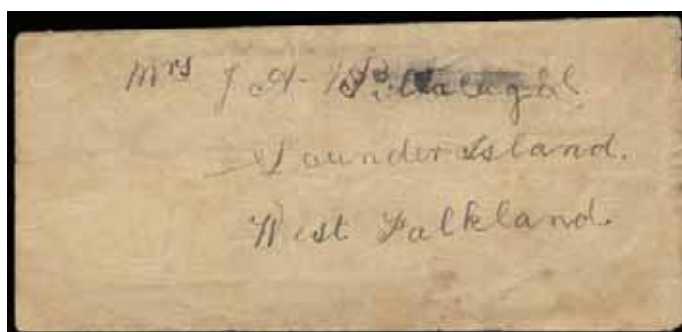 Mrs J. A.
Saunder Island.
West Falkland.